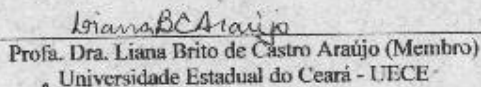 LianaBCAraújo
Profa. Dra. Liana Brito de Castro Araújo (Membro)
Universidade Estadual do Ceará - UECE